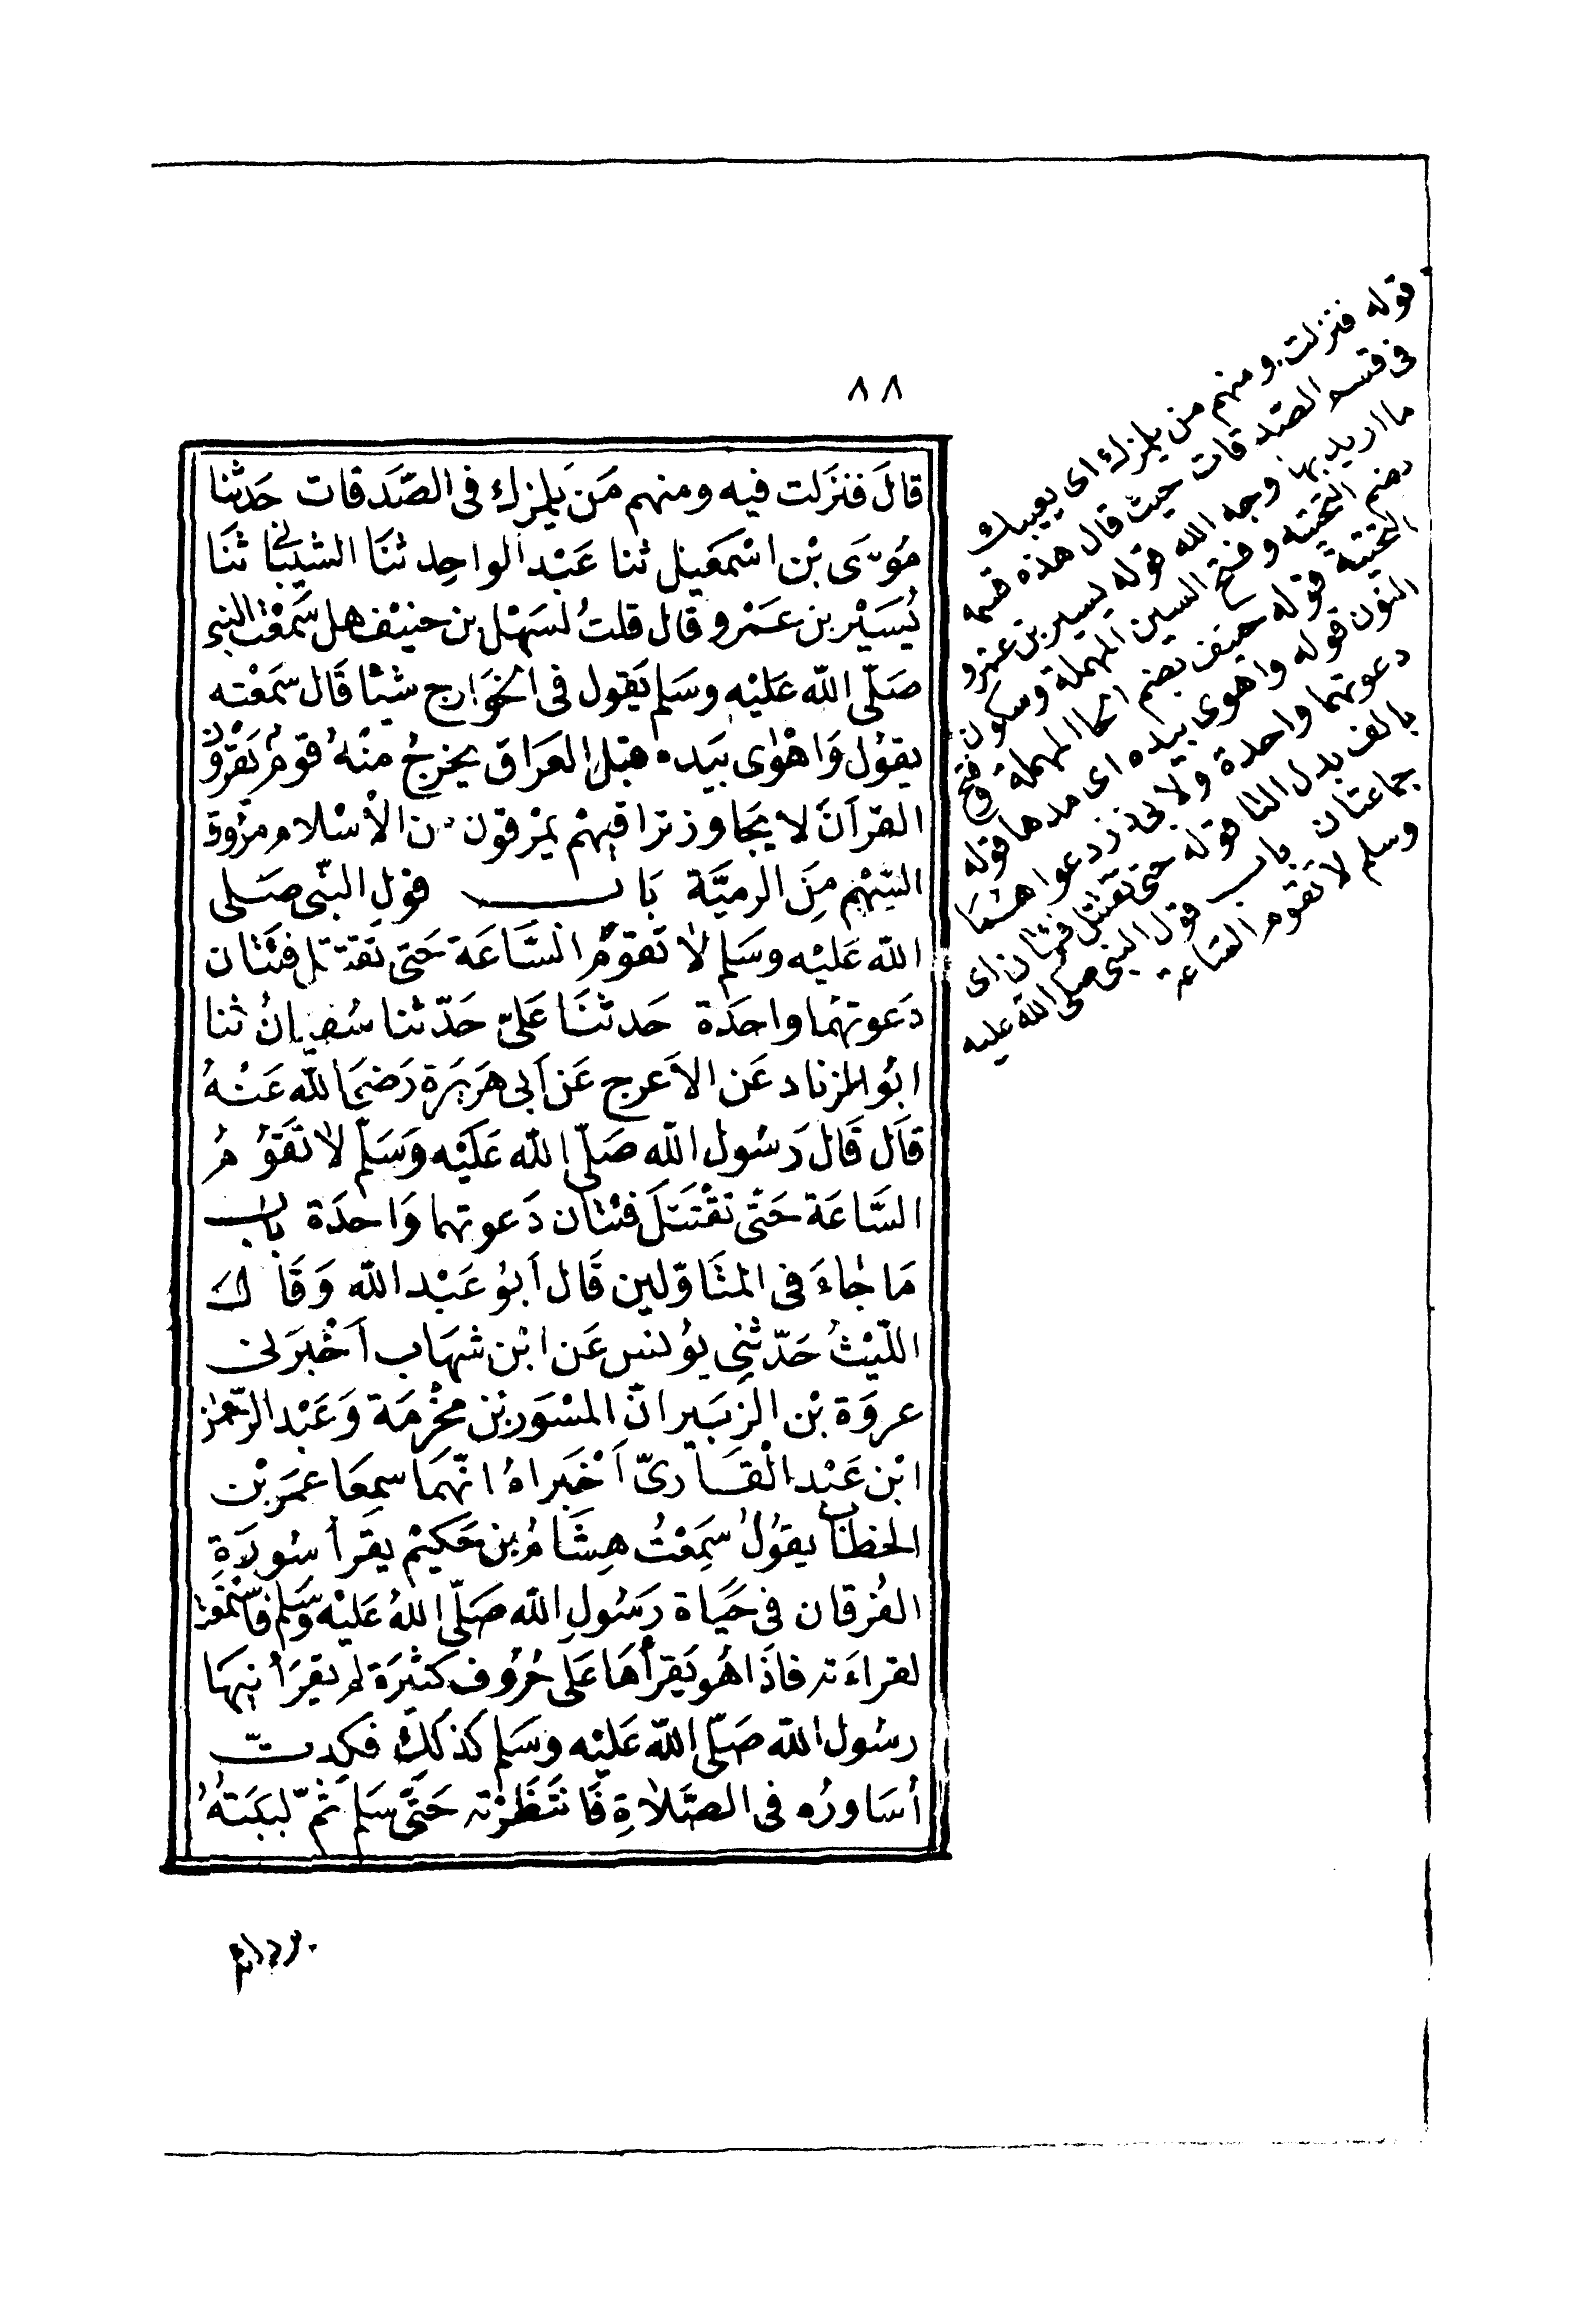 ٨٨
قالَ فنزَلت فيه ومنهم مَن يَلمزك فى الصَّدقات حَدثنا
مُوسَى بْن اسْمَعيل ثنا عَبْد الواحِد ثنَا الشيبانى ثنَا
يُسَيْر بن عَمْرو قال قلتُ لسَهْل بن حنيْف هل سَمعْت النبى
صَلّى الله عَليْه وسَلم يَقول فى الخوَارج شيئا قَال سَمعْته
يقوُل وَاهْوٰى بيَده قبَل العرَاق يخرجُ منْهُ قومٌ يَقرؤن
القرآنَ لا يجَاوز تراقيهمْ يمْرقون من الأسْلام مرُوق
السّهْم مِنَ الرميَّة بَاب قول النّبى صَلى
الله عَليْه وسَلم لا تَقومُ السَّاعَة حَتى تَقتتل فئتَان
دَعوتهُما واحدَة حَدثنَا عَلىّ حَدّثنا سُفيانُ ثنا
ابُو الزناد عَن الاَعرج عَن اَبى هرَيرَة رَضىَ الله عَنْهُ
قاَل قَال رَسُول الله صَلّى الله عَليْه وَسَلّم لا تَقوُمُ
السَّاعَة حَتّى تقْتَتلَ فئتان دَعوتهما وَاحدَة باب
مَا جٰاءَ فى المتَأوّلين قَال اَبوُ عَبْد الله وَقَال
اللّيْثُ حَدّثنِى يوُنس عَن ابْن شهَاب اَخْبرَنى
عروَة بْن الزبَير انّ المسْوَر بْن مخْرمَة وَعَبْد الرّحمٰن
ابْن عَبْد الْقَارىّ اَخْبَراهُ انّهمَا سمِعَا عمَر بْن
الخطاب يقوُلُ سَمِعْتُ هِشَامُ بن حَكيْم يقَرأ سُورَةِ
الفُرقان فى حَيَاة رَسُولِ الله صَلّى اللهُ عَليْه وسَلم فاسْتمَعْت
لقراءَته فاذَا هُو يَقرأُهَا عَلى حُروُف كثيرَة لم يقرَأنيهَا
رسُول الله صَلّى الله عَليْه وسَلم كذلكَ فكِدتّ
أسَاورُه فى الصَّلاٰةِ فَانتَظَرْته حَتَّى سَلم ثمّ لبَبَتهُ
قوله فنزلت ومنهم من يلمزك اى يعيبك
فى قسم الصّدقات حيث قال هذه قسمة
ما اريد بها وجه الله قوله يسير بن عمرو
بضم التحتية وفتح السين المهملة وسكون
التحتية قوله حنيف بضم الحا المهملة وفتح
النون قوله واهوى بيده اى مدها قوله
دعوتهما واحدة
بالف بدل التا قوله حتى تقتتل فئتان اى
جماعتان باب قول النبى صلى الله عليه
وسلم لا تقوم السّاعة